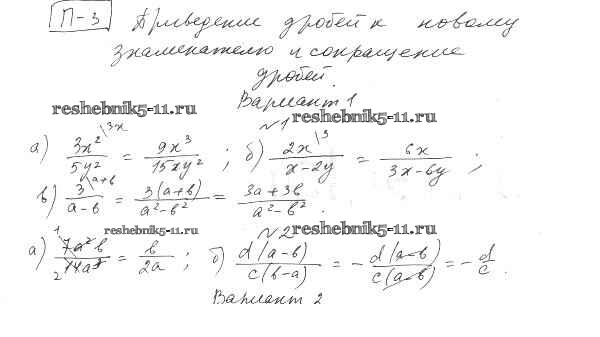 П-3 Приведение дробей к новому
знаменателю и сокращение
дробей.
Вариант 1
reshebnik5-11.ru reshebnik5-11.ru
№1
а) 3x²/5y² \3x = 9x³/15xy² ; б) 2x/(x-2y) \3 = 6x/(3x-6y) ;
в) 3/(a-b) \a+b = 3(a+b)/(a²-b²) = (3a+3b)/(a²-b²).
reshebnik5-11.ru №2 reshebnik5-11.ru
а) 7a²b/14a³ = b/2a ; б) d(a-b)/c(b-a) = - d(a-b)/c(a-b) = - d/c.
1
2
Вариант 2